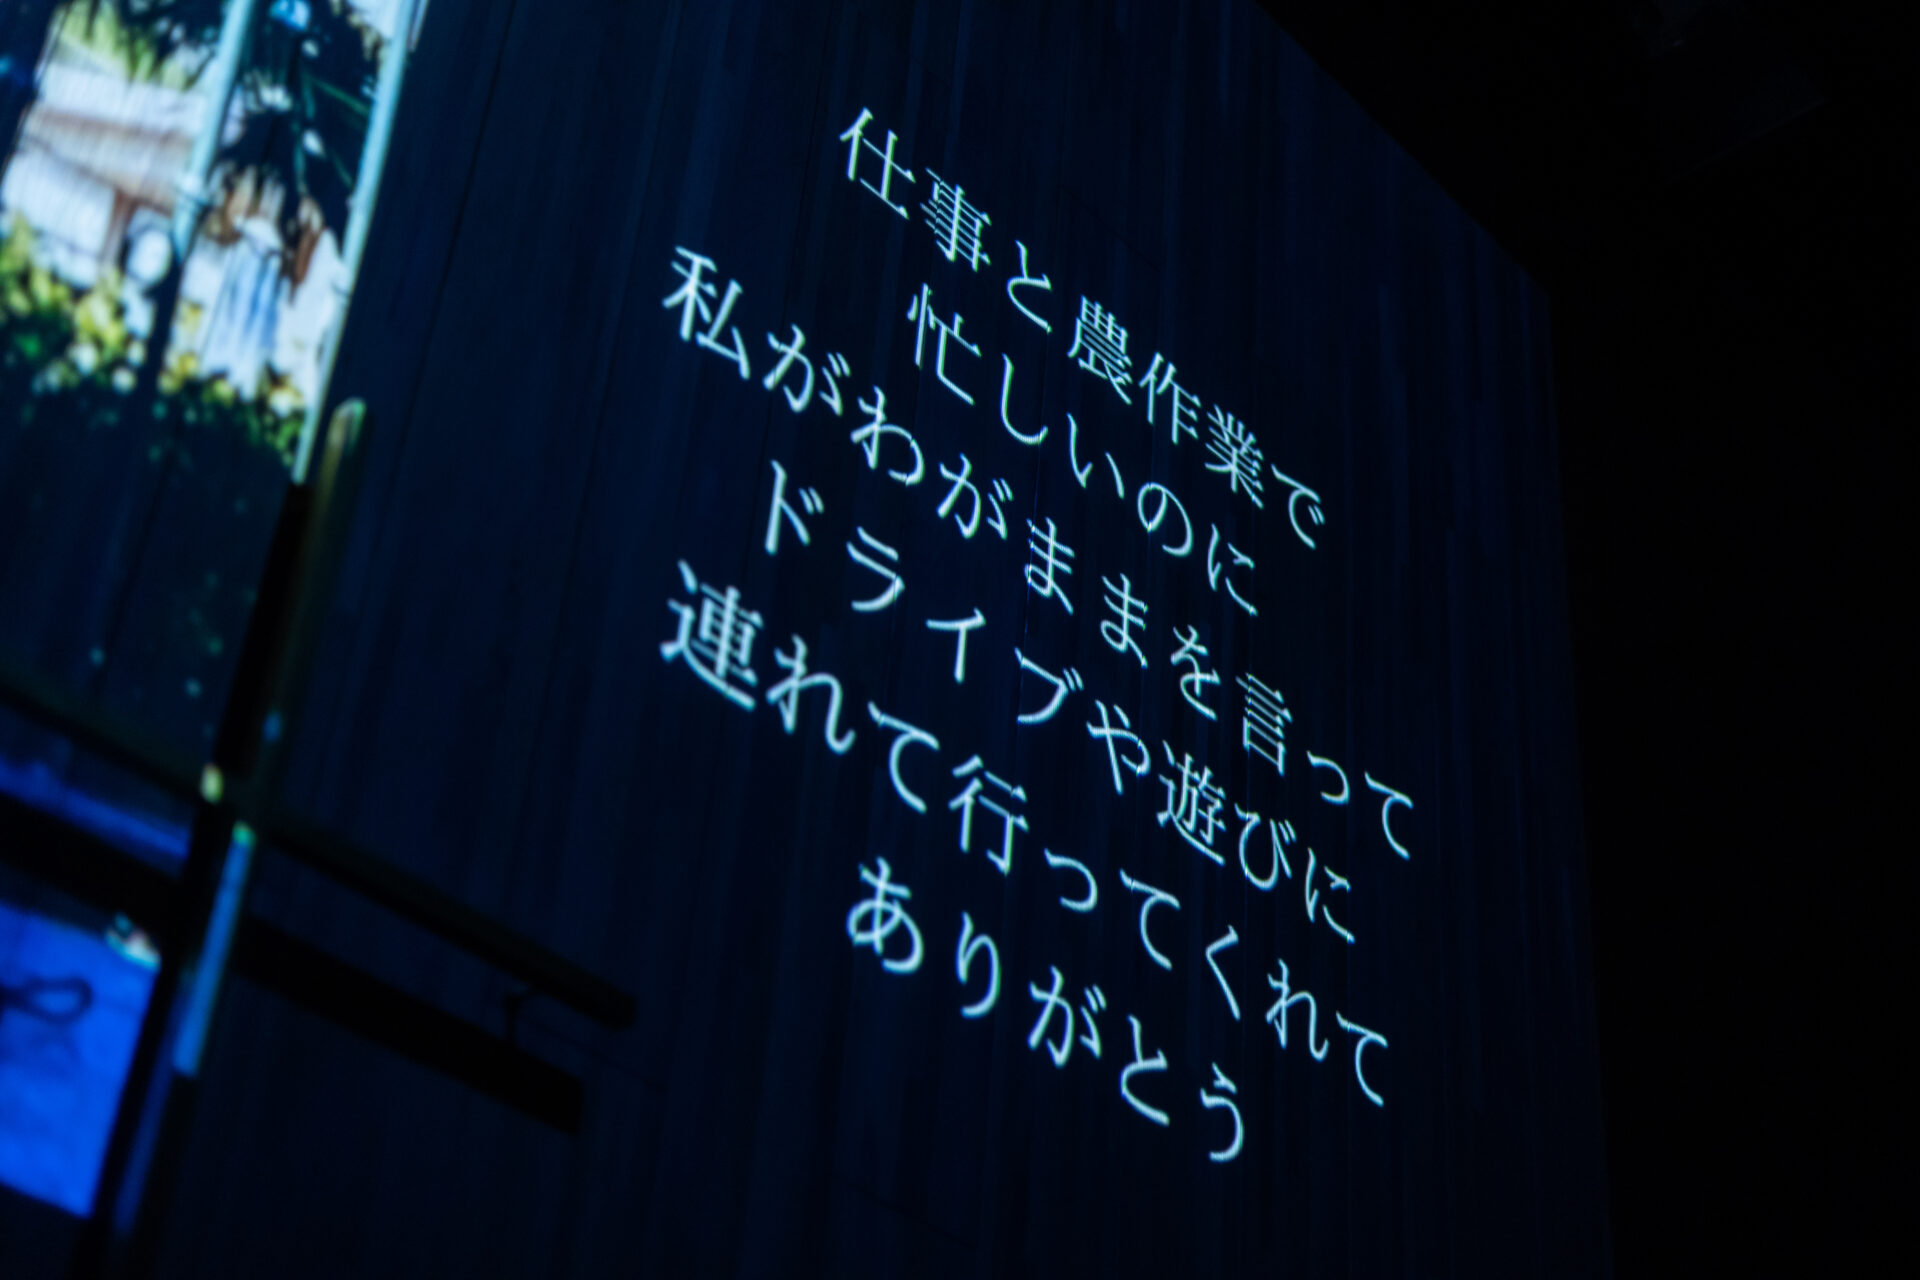 仕事と農作業で
忙しいのに
私がわがままを言って
ドライブや遊びに
連れて行ってくれて
ありがとう